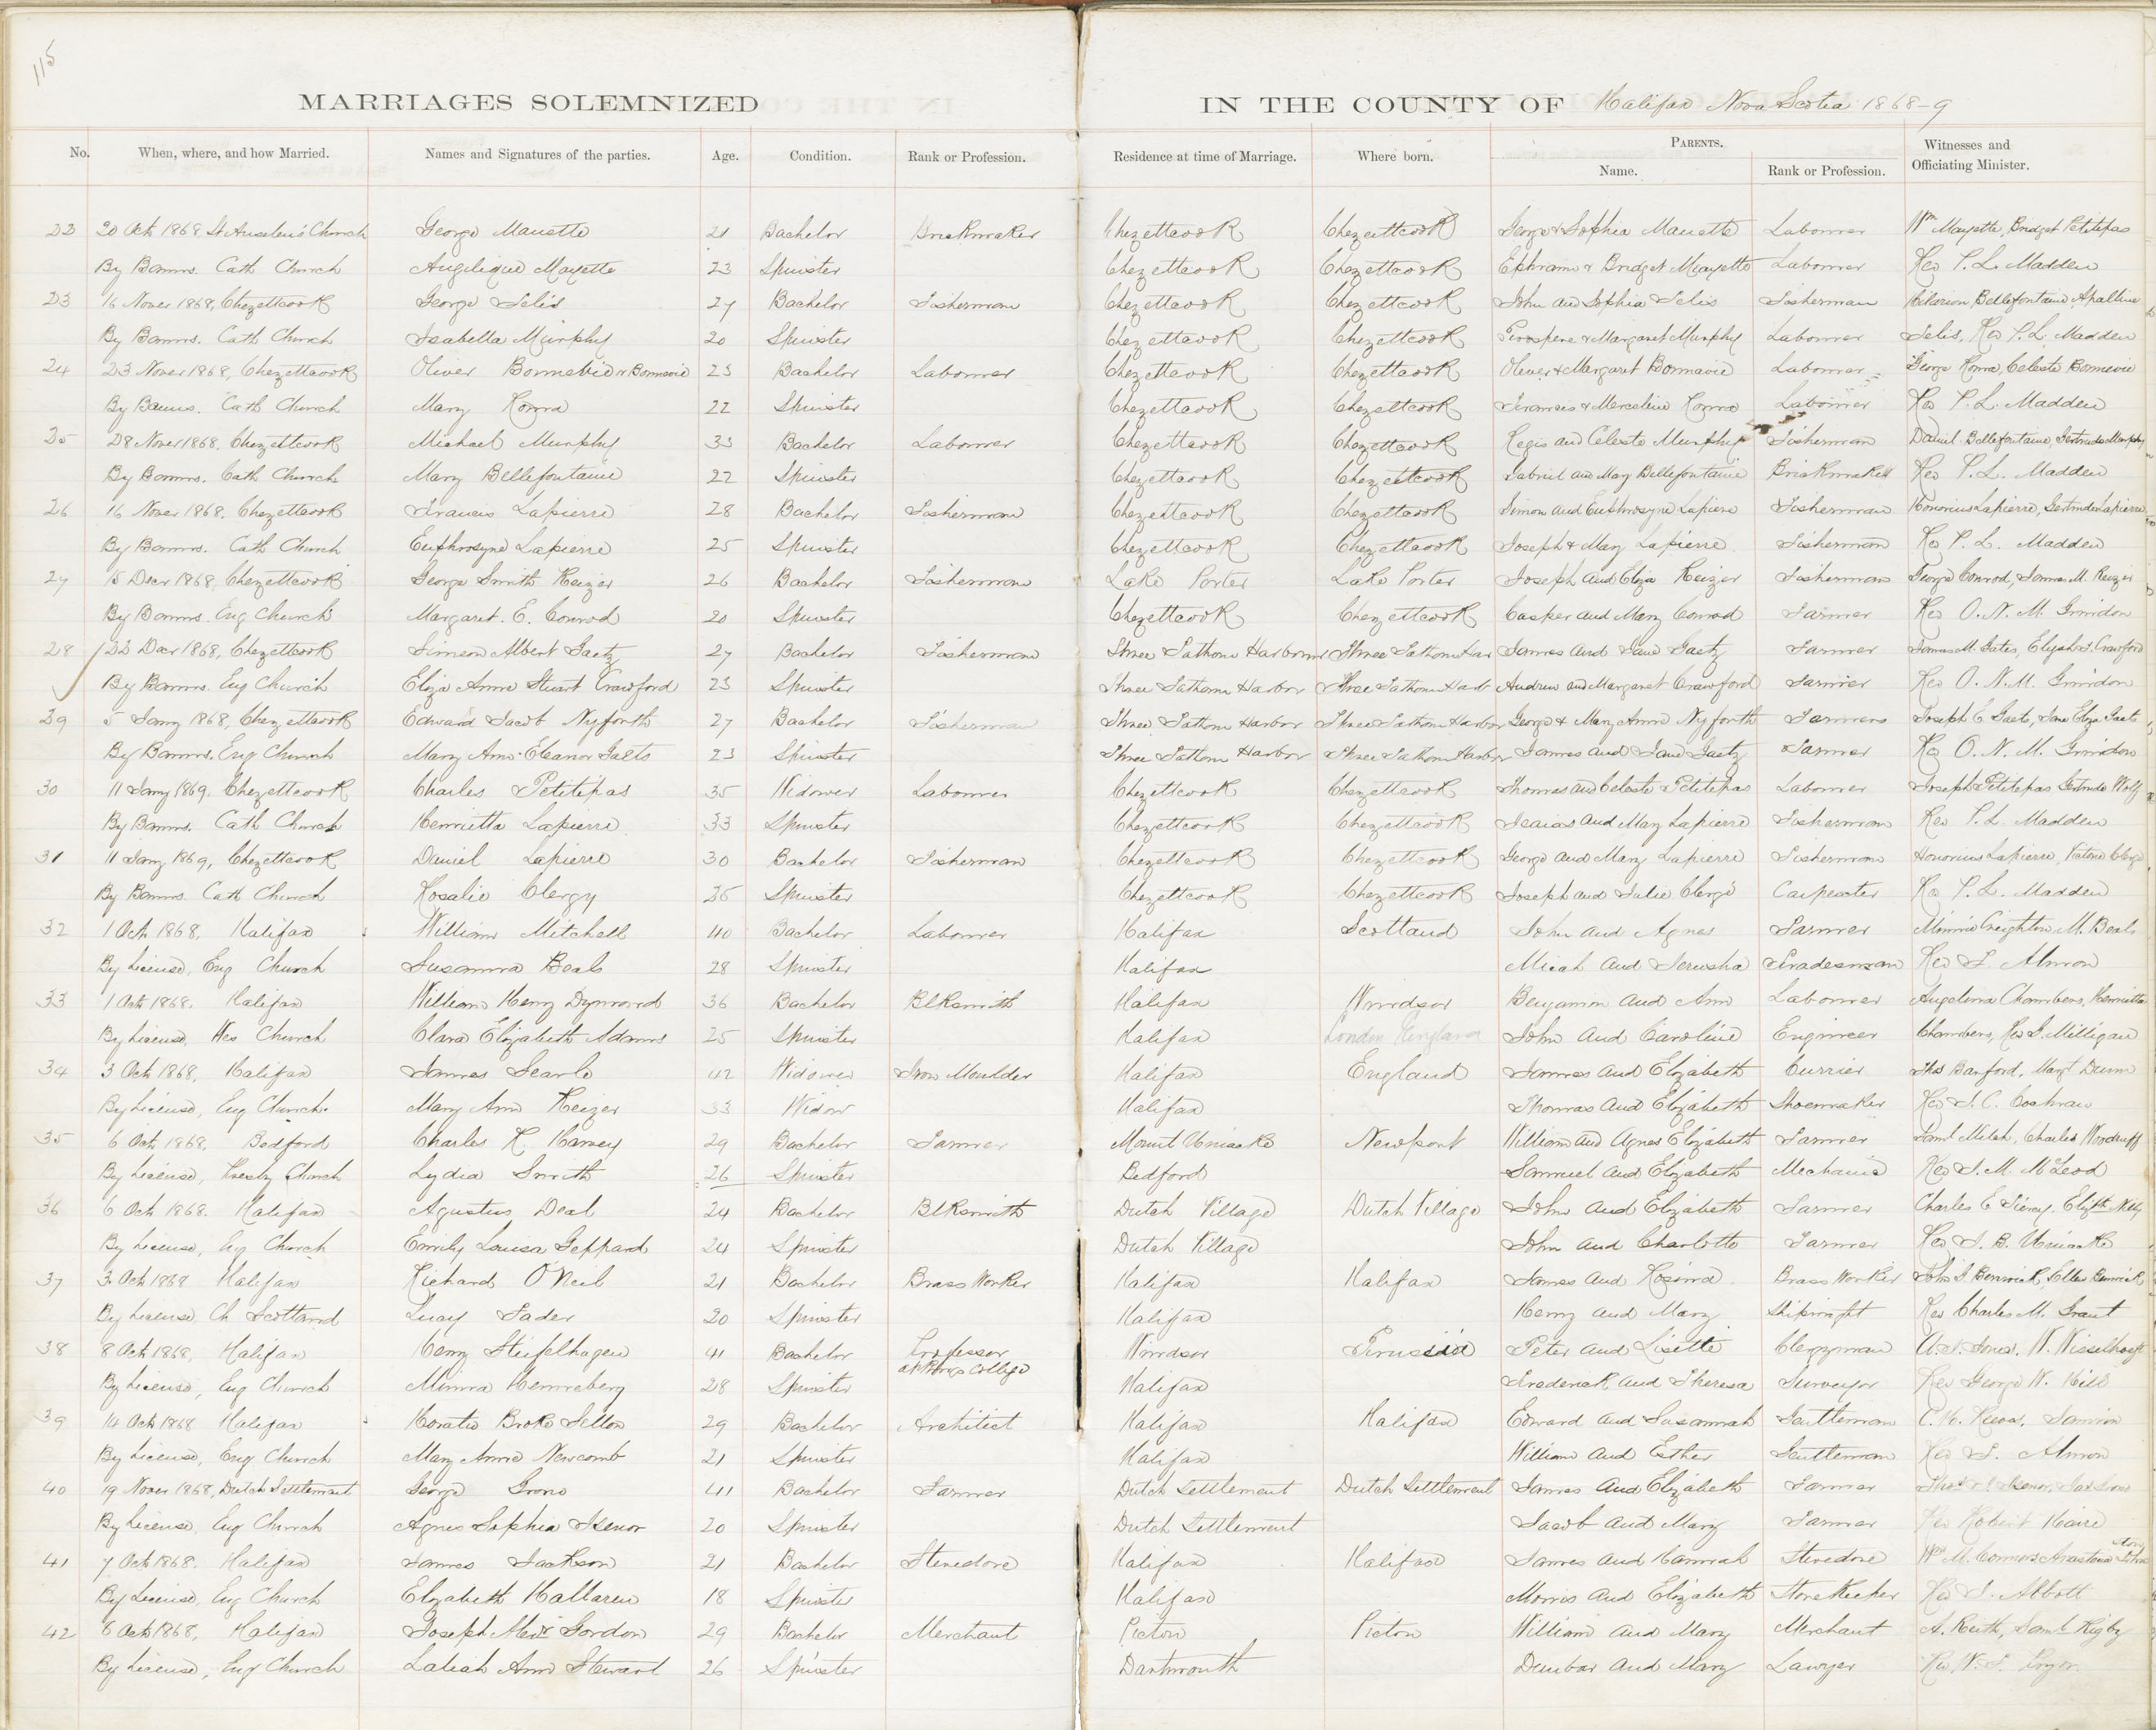 115
MARRIAGES SOLEMNIZED IN THE COUNTY OF Halifax Nova Scotia 1868-9
No. When, where, and how Married. Names and Signatures of the parties. Age. Condition. Rank or Profession. Residence at time of Marriage. Where born. PARENTS. Name. Rank or Profession. Witnesses and Officiating Minister.
22 20 Oct 1868, St Anselm's Church George Manette 21 Bachelor Brickmaker Chezettcook Chezettcook George & Sophia Manette Labourer Wm Mayette, Bridget Petitpas
By Banns. Cath Church Angelique Mayette 23 Spinster Chezettcook Chezettcook Ephraim & Bridget Mayette Labourer Rev P. L. Madden
23 16 Nover 1868, Chezettcook George Selis 27 Bachelor Fisherman Chezettcook Chezettcook John and Sophia Selis Fisherman Hilarion Bellefontaine, Apalline
By Banns. Cath Church Isabella Murphy 20 Spinster Chezettcook Chezettcook Prospere & Margaret Murphy Labourer Selis, Rev P. L. Madden
24 23 Nover 1868, Chezettcook Oliver Bonnevie or Bonnavie 23 Bachelor Labourer Chezettcook Chezettcook Oliver & Margaret Bonnavie Labourer George Roma, Celeste Bonnevie
By Banns. Cath Church Mary Roma 22 Spinster Chezettcook Chezettcook Francis & Marceline Roma Labourer Rev P. L. Madden
25 28 Nover 1868, Chezettcook Michael Murphy 33 Bachelor Labourer Chezettcook Chezettcook Regis and Celeste Murphy Fisherman Daniel Bellefontaine, Gertrude Murphy
By Banns. Cath Church Mary Bellefontaine 22 Spinster Chezettcook Chezettcook Gabriel and Mary Bellefontaine Brickmaker Rev P. L. Madden
26 16 Nover 1868, Chezettcook Francis Lapierre 28 Bachelor Fisherman Chezettcook Chezettcook Simon and Euphrosyne Lapierre Fisherman Honorius Lapierre, Gertrude Lapierre
By Banns. Cath Church Euphrosyne Lapierre 25 Spinster Chezettcook Chezettcook Joseph & Mary Lapierre Fisherman Rev P. L. Madden
27 15 Decr 1868, Chezettcook George Smith Keizer 26 Bachelor Fisherman Lake Porter Lake Porter Joseph and Eliza Keizer Fisherman George Conrod, James M. Keizer
By Banns. Eng Church Margaret. E. Conrod 20 Spinster Chezettcook Chezettcook Casper and Mary Conrod Farmer Rev O. N. M. Grindon
28 22 Decr 1868, Chezettcook Simeon Albert Gaetz 27 Bachelor Fisherman Three Fathom Harbour Three Fathom Har James and Jane Gaetz Farmer James M. Gates, Elijah S. Crawford
By Banns. Eng Church Eliza Anne Stuart Crawford 23 Spinster Three Fathom Harbor Three Fathom Harb Andrew and Margaret Crawford Farmer Rev O. N. M. Grindon
29 5 Jany 1868, Chezettcook Edward Jacob Nyforth 27 Bachelor Fisherman Three Fathom Harbor Three Fathom Harbor George & Mary Anne Nyforth Farmers Joseph E Gaets, Jane Eliza Gaets
By Banns. Eng Church Mary Ann Eleanor Gaets 23 Spinster Three Fathom Harbor Three Fathom Harbor James and Jane Gaetz Farmer Rev O. N. M. Grindon
30 11 Jany 1869, Chezettcook Charles Petitipas 35 Widower Labourer Chezettcook Chezettcook Thomas and Celeste Petitipas Labourer Joseph Petitipas Gertrude Wolf
By Banns. Cath Church Henrietta Lapierre 33 Spinster Chezettcook Chezettcook Isaias and Mary Lapierre Fisherman Rev P. L. Madden
31 11 Jany 1869, Chezettcook Daniel Lapierre 30 Bachelor Fisherman Chezettcook Chezettcook George and Mary Lapierre Fisherman Honorius Lapierre, Victorie Clergé
By Banns. Cath Church Rosalie Clergy 25 Spinster Chezettcook Chezettcook Joseph and Julie Clergé Carpenter Rev P. L. Madden
32 1 Oct 1868, Halifax William Mitchell 40 Bachelor Labourer Halifax Scotland John and Agnes Farmer Minnie Creighton M. Beals
By License, Eng Church Susanna Beals 28 Spinster Halifax Micah and Jerusha Tradesman Rev F. Almon
33 1 Oct 1868. Halifax William Henry Dymond 36 Bachelor BlKsmith Halifax Windsor Benjamin and Ann Labourer Angelina Chambers, Henrietta
By License, Wes Church Clara Elizabeth Adams 25 Spinster Halifax London England John and Caroline Engineer Chambers, Rev G. Milligan
34 3 Oct 1868, Halifax James Searle 42 Widower Iron Moulder Halifax England James and Elizabeth Currier Thos Banford, Margt Dunn
By License, Eng Church. Mary Ann Keizer 33 Widow Halifax Thomas and Elizabeth Shoemaker Rev J. C. Cochran
35 6 Oct 1868, Bedford Charles K. Harvey 29 Bachelor Farmer Mount Uniacke Newport William and Agnes Elizabeth Farmer Saml Mitch, Charles Woodruff
By License, Presby Church Lydia Smith 26 Spinster Bedford Samuel and Elizabeth Mechanic Rev J. M. McLeod
36 6 Oct 1868. Halifax Agustus Deal 24 Bachelor BlKsmith Dutch Village Dutch Village John and Elizabeth Farmer Charles E
By License, Eng Church Emily Louisa Geppard 24 Spinster Dutch Village John and Charlotte Farmer Rev J. B. Uniacke
37 3 Oct 1868 Halifax Richard O'Neil 21 Bachelor Brass Worker Halifax Halifax James and Rosina Brass Worker John S Benwick, Ellen Benwick
By License, Ch Scotland Lucy Fader 20 Spinster Halifax Henry and Mary Shipwright Rev Charles M. Grant
38 8 Oct 1868, Halifax Henry Stiefelhagen 41 Bachelor Professor at Kings College Windsor Prussia Peter and Lisette Clergyman W. Wisselhoeft
By License, Eng Church Minna Henneberg 28 Spinster Halifax Frederick and Theresa Surveyor Rev George W. Hill
39 14 Oct 1868 Halifax Horatio Broke Sellon 29 Bachelor Architect Halifax Halifax Edward and Susannah Gentleman
By License, Eng Church Mary Anne Newcomb 21 Spinster Halifax William and Esther Gentleman Rev F. Almon
40 19 Nover 1868, Dutch Settlement George Grono 41 Bachelor Farmer Dutch Settlement Dutch Settlement James and Elizabeth Farmer
By License, Eng Church Agnes Sophia Isenor 20 Spinster Dutch Settlement Jacob and Mary Farmer Rev Robert Haire
41 7 Oct 1868. Halifax James Jackson 21 Bachelor Stevedore Halifax Halifax James and Hannah Stevedore Wm M. Connors
By License, Eng Church Elizabeth Hallaren 18 Spinster Halifax Morris and Elizabeth StoreKeeper Rev J. Abbott
42 6 Oct 1868, Halifax Joseph Gordon 29 Bachelor Merchant Picton Picton William and Mary Merchant A. Keith, Saml Rigby
By License, Eng Church Laleah Ann Stewart 26 Spinster Dartmouth Dunbar and Mary Lawyer Rev